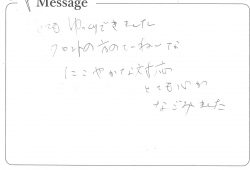 Message
ゆっくりできました
フロントの方のてーねーな
にこやかな対応
とても心が
なごみました